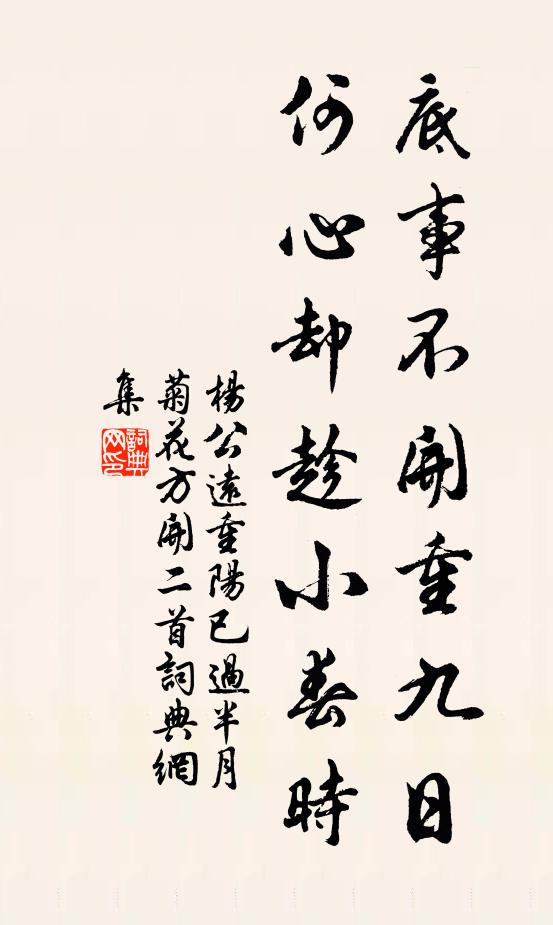 底事不開重九日
何心却趁小春時
楊公遠重陽已過半月
菊花方開二首詞典網
集
詞典
网印